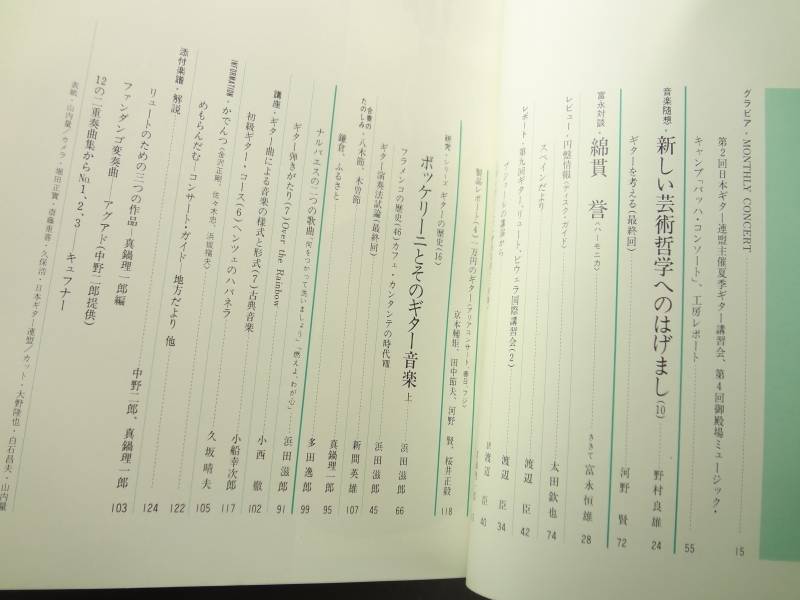 グラビア・MONTHLY CONCERT 15
第2回日本ギター連盟主催夏季ギター講習会、第4回御殿場ミュージック・
キャンプ「バッハ・コンソート」、工房レポート 55
音楽随想・新しい芸術哲学へのはげまし(10) 野村良雄 24
ギターを考える(最終回) 河野 賢 72
富永対談・綿貫 誉〈ハーモニカ〉 ききて 富永恒雄 28
レビュー・円盤情報〈ディスク・ガイド〉
スペインだより 太田欽也 74
レポート・第九回ギター、リュート、ビウェラ国際講習会(2) 渡辺 臣 42
の講演から 渡辺 臣 34
渡辺 臣 40
製品レポート(4)一万円のギター(アリアコンサート、春日、フジ)
京本輔矩、田中節夫、河野 賢、桜井正毅 118
研究・シリーズ ギターの歴史(16)
ボッケリーニとそのギター音楽 上 浜田滋郎 66
フラメンコの歴史(46)カフェ・カンタンテの時代Ⅷ 浜田滋郎 45
ギター演奏法試論(最終回) 新間英雄 107
合奏の
たのしみ・八木節、木曽節
鎌倉、ふるさと 真鍋理一郎 95
ナルバエスの二つの歌曲「何をつかって洗いましょう」「燃えよ、わが心」 多田逸郎 99
ギター弾きがたり(7)Over the Rainbow 浜田滋郎 91
講座・ギター曲による音楽の様式と形式(7)古典音楽 小西 徹 102
初級ギター・コース(6)ヘンツェのハバネラ 小船幸次郎 117
INFORMATION・かでんつ(金沢正剛、佐々木忠、浜坂福夫) 久坂晴夫 105
めもらんだむ・コンサート・ガイド 地方だより 他 122
添付楽譜・解説 中野二郎、真鍋理一郎 124
リュートのための三つの作品―真鍋理一郎編 103
ファンダンゴ変奏曲――アグアド(中野二郎提供)
12の二重奏曲集からNo.1、2、3――キュフナー
表紙・山内量/カメラ・堀田正實・斎藤重喜・久保浩・日本ギター連盟/カット・大野隆也・白石昌夫・山内量